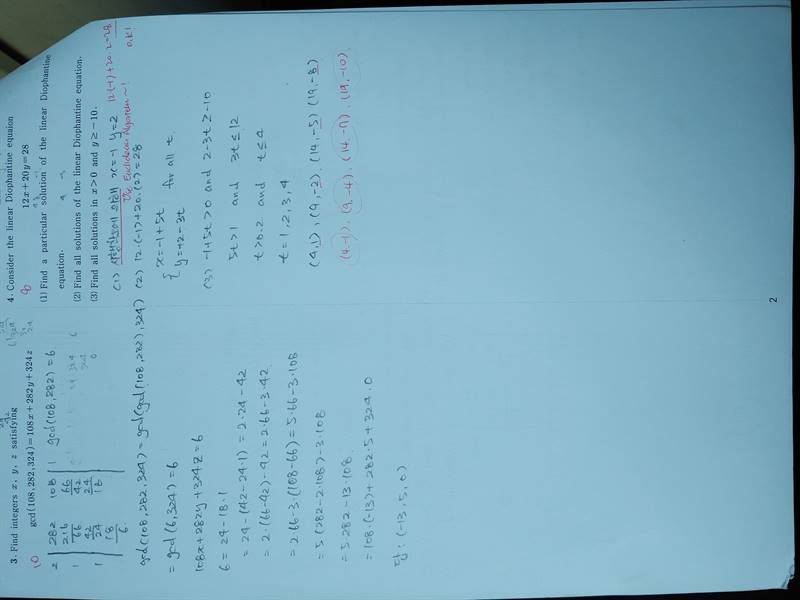 3. Find integers x, y, z satisfying
gcd(108,282,324)=108x+282y+324z
10
2 | 282 108 | 1 gcd(108,282)=6
216 66
1 | 66 42
42 24
1 | 24 18
18
6
gcd(108,282,324)=gcd(gcd(108,282),324)
=gcd(6,324)=6
108x+282y+324z=6
6=24-18·1
=24-(42-24·1)=2·24-42
=2·(66-42)-42=2·66-3·42
=2·66-3·(108-66)=5·66-3·108
=5(282-2·108)-3·108
=5·282-13·108
=108·(-13)+282·5+324·0
답: (-13, 5, 0)
4. Consider the linear Diophantine equaion
12x+20y=28
(1) Find a particular solution of the linear Diophantine
equation.
(2) Find all solutions of the linear Diophantine equation.
(3) Find all solutions in x>0 and y≥-10.
(1) x=-1 y=2 12(-1)+20·2=28
Euclidean Algorithm~! O.K!
(2) 12·(-1)+20·(2)=28
{ x=-1+5t
y=+2-3t for all t.
(3) -1+5t>0 and 2-3t≥-10
5t>1 and 3t≤12
t>0.2 and t≤4
t=1,2,3,4
(4,1), (9,-2), (14,-5) (19,-8)
(4-1), (9,-4), (14,-7), (19,-10).
2